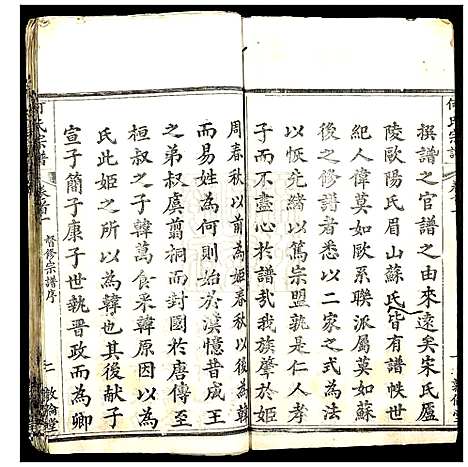 何氏宗譜
卷首一
撰譜之官譜之由來遠矣宋氏廬
陵歐陽氏眉山蘇氏皆有譜帙世
紀人偉莫如歐系聯派屬莫如蘇
後之修譜者悉以二家之式為法
以恢先緒以篤宗盟孰是仁人孝
子而不盡心於譜哉我族肇於幾
周春秋以前為姬春秋以後為韓
而易姓為何則始於漢憶昔成王
之弟叔虞剪桐而封國於唐傳至
桓叔之子韓萬食采韓原因以為
氏此姬之所以為韓也其後献子
宣子簡子康子世執晋政而為卿
何氏宗譜
卷首一
督修宗譜序
二
敦倫堂